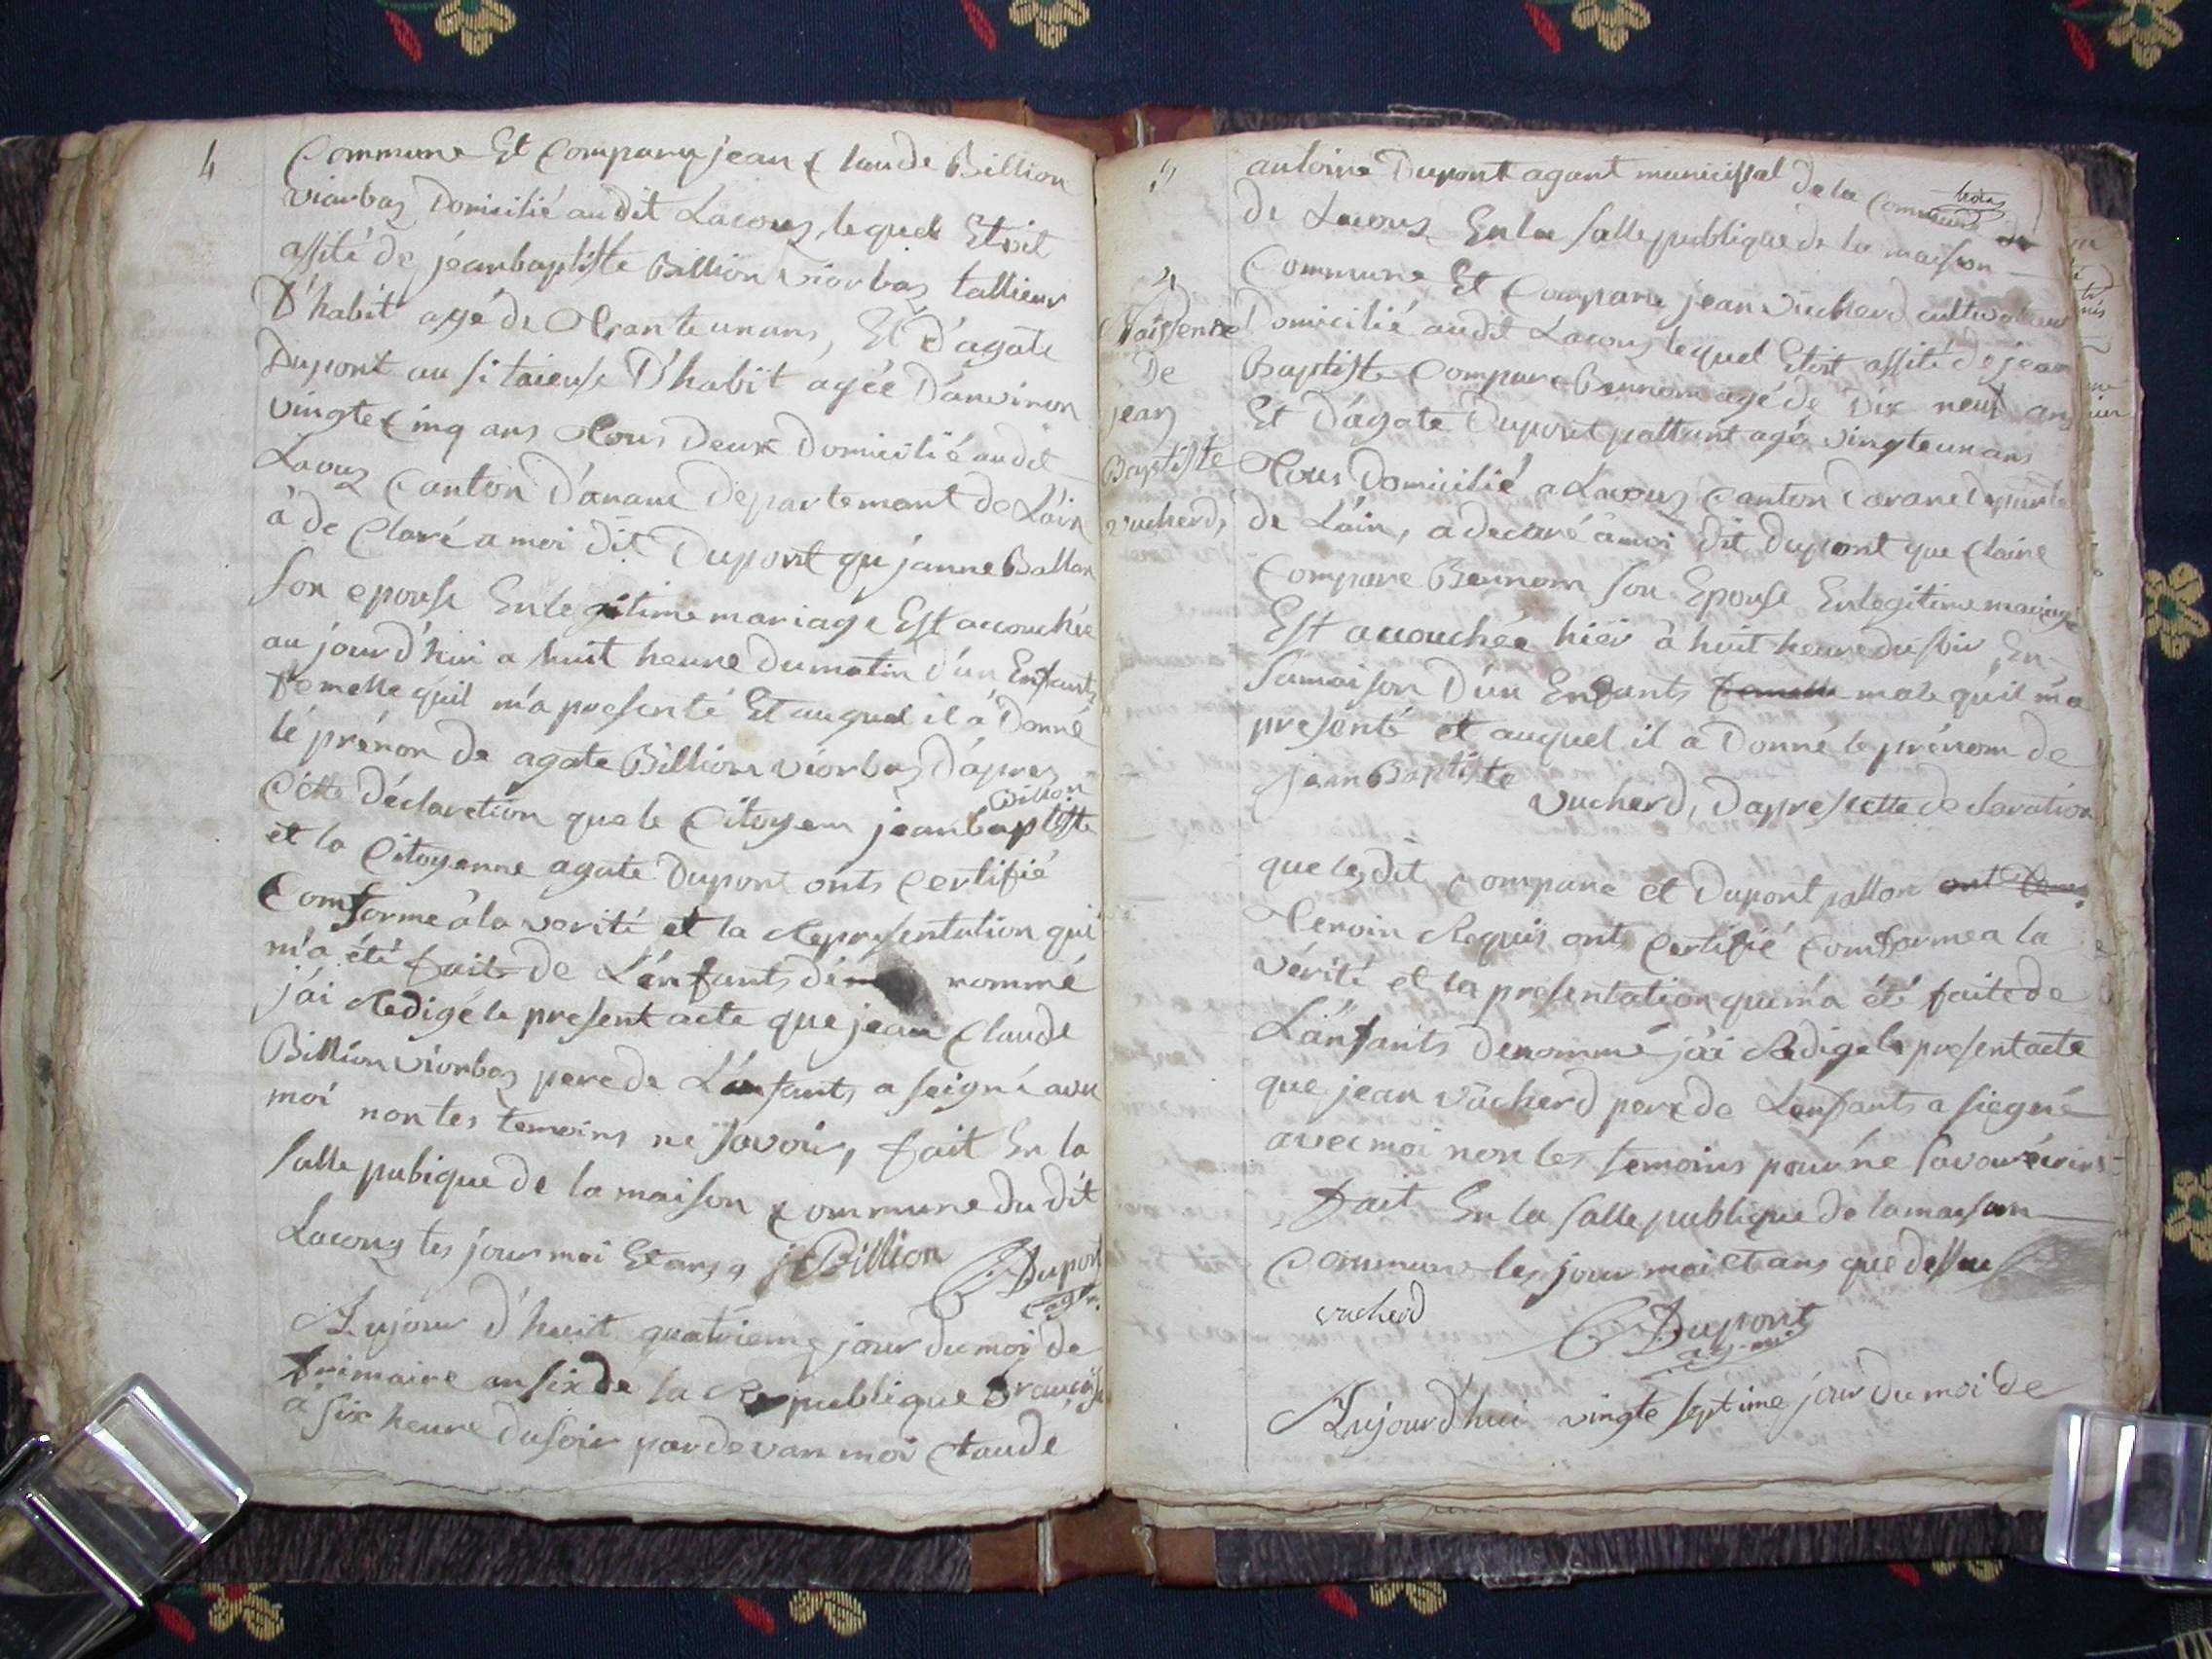 4
Commune Et Compary jean Claude Billion
viorbas Domicilié audit Lacoux, lequel Etoit
assité de jéanbaptiste Billion viorbas tallieur
D'habit agé de Trante un ans, Et D'agate
Dupont au si taieuse D'habit agée D'anviron
vingte Cinq ans Tous Deux Domicilié audit
Lacoux Canton D'aranc Departemant de L'áin
à de Claré a moi dit Dupont qu'janne Ballan
son epouse En legitime mariage Est accouchée
au jourd'hui a huit heure du matin d'un Enfants
femelle quil m'a presenté Et auquel il a Donné
lé prénon de agate Billion viorbas D'apres
Cétte déclaretion que le Citoyem jeanbaptiste
Billion
et la Citoyenne agate Dupont onts Certifié
Comforme à la verité et la Representation qui
m'a été faite de L'énfants dé nommé
j'ai Redigé le present acte que jean Claude
Billion viorbas pere de L'anfants a seigné avec
moi non les temoins ne savoir, fait En la
salle pubique de la maison Commune du dit
Lacoux les jour moi Et ans jC Billion
C: Dupont
ag.
Aujour d'huit quatriemes jour du moi de
frimaire an six de la Republique Française
a six heure du soir pardevan moi Claude
5
antoine Dupont agant municipal de la Commune
de Lacoux En la salle publique de la maison
Commune Et Compare jean vucherd cultivateur
Domicilié audit Lacoux lequel Etoit assité de jean
Baptiste Compare Bennom agé de Dix neuf ans
Et D'ágate Dupont pallant agée vingte un ans
Tous Domicilié a Lacoux Canton Daranc
de L'áin, a declaré a moi dit Dupont que Claire
Compare Bennom son Epouse En legitime mariage
Est accouchée hiér à huit heure du soir En
sa maison D'un Enfants femelle male qu'il m'a
presenté et auquel il a Donné le prénom de
jean Baptiste
vucherd, D'apres cette declaration
que lesdit Compare et Dupont pallan ont
Temoin Requis onts Certifié Comforme a la
vérité et la presentation qui m'a été faite de
L'ánfants denommé j'ai Redigé le present acte
que jean vucherd pere de Lenfants a siegné
avec moi non les temoins pour né savoir écrire
fait En la salle publique de la maison
Commune les jour moi et ans que dessu
vucherd
C Dupont
ag. mu
Aujourd'hui vingte septime jour du moi de
2
Naissence
De
jean
Baptiste
vucherd,